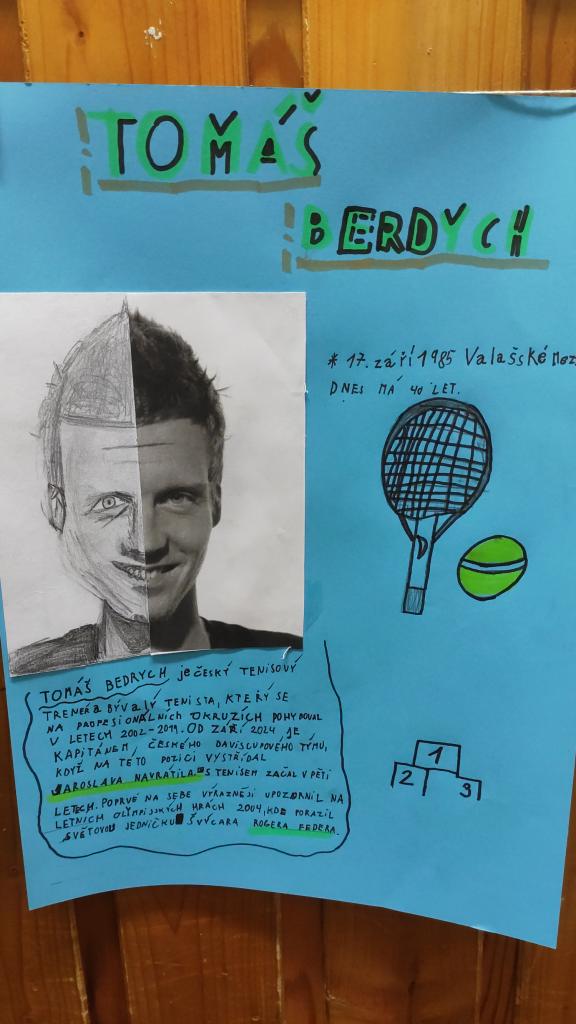 TOMÁŠ
BERDYCH
* 17. září 1985 Valašské Mez
DNES MÁ 40 LET.
TOMÁŠ BEDRYCH je ČESKÝ TENISOVÝ
TRENÉR A BÝVALÝ TENISTA, KTERÝ SE
NA PROFESIONÁLNÍCH OKRUZÍCH POHYBOVAL
V LETECH 2002-2019. OD ZÁŘÍ 2024 JE
KAPITÁNEM ČESKÉHO DAVISCUPOVÉHO TÝMU,
KDYŽ NA TÉTO POZICI VYSTŘÍDAL
JAROSLAVA NAVRÁTILA. S TENISEM ZAČAL V PĚTI
LETECH. POPRVÉ NA SEBE VÝRAZNĚJI UPOZORNIL NA
LETNÍCH OLYMPIJSKÝCH HRÁCH 2004, KDE PORAZIL
SVĚTOVOU JEDNIČKU ŠVÝCARA ROGERA FEDERA.
1
2 3